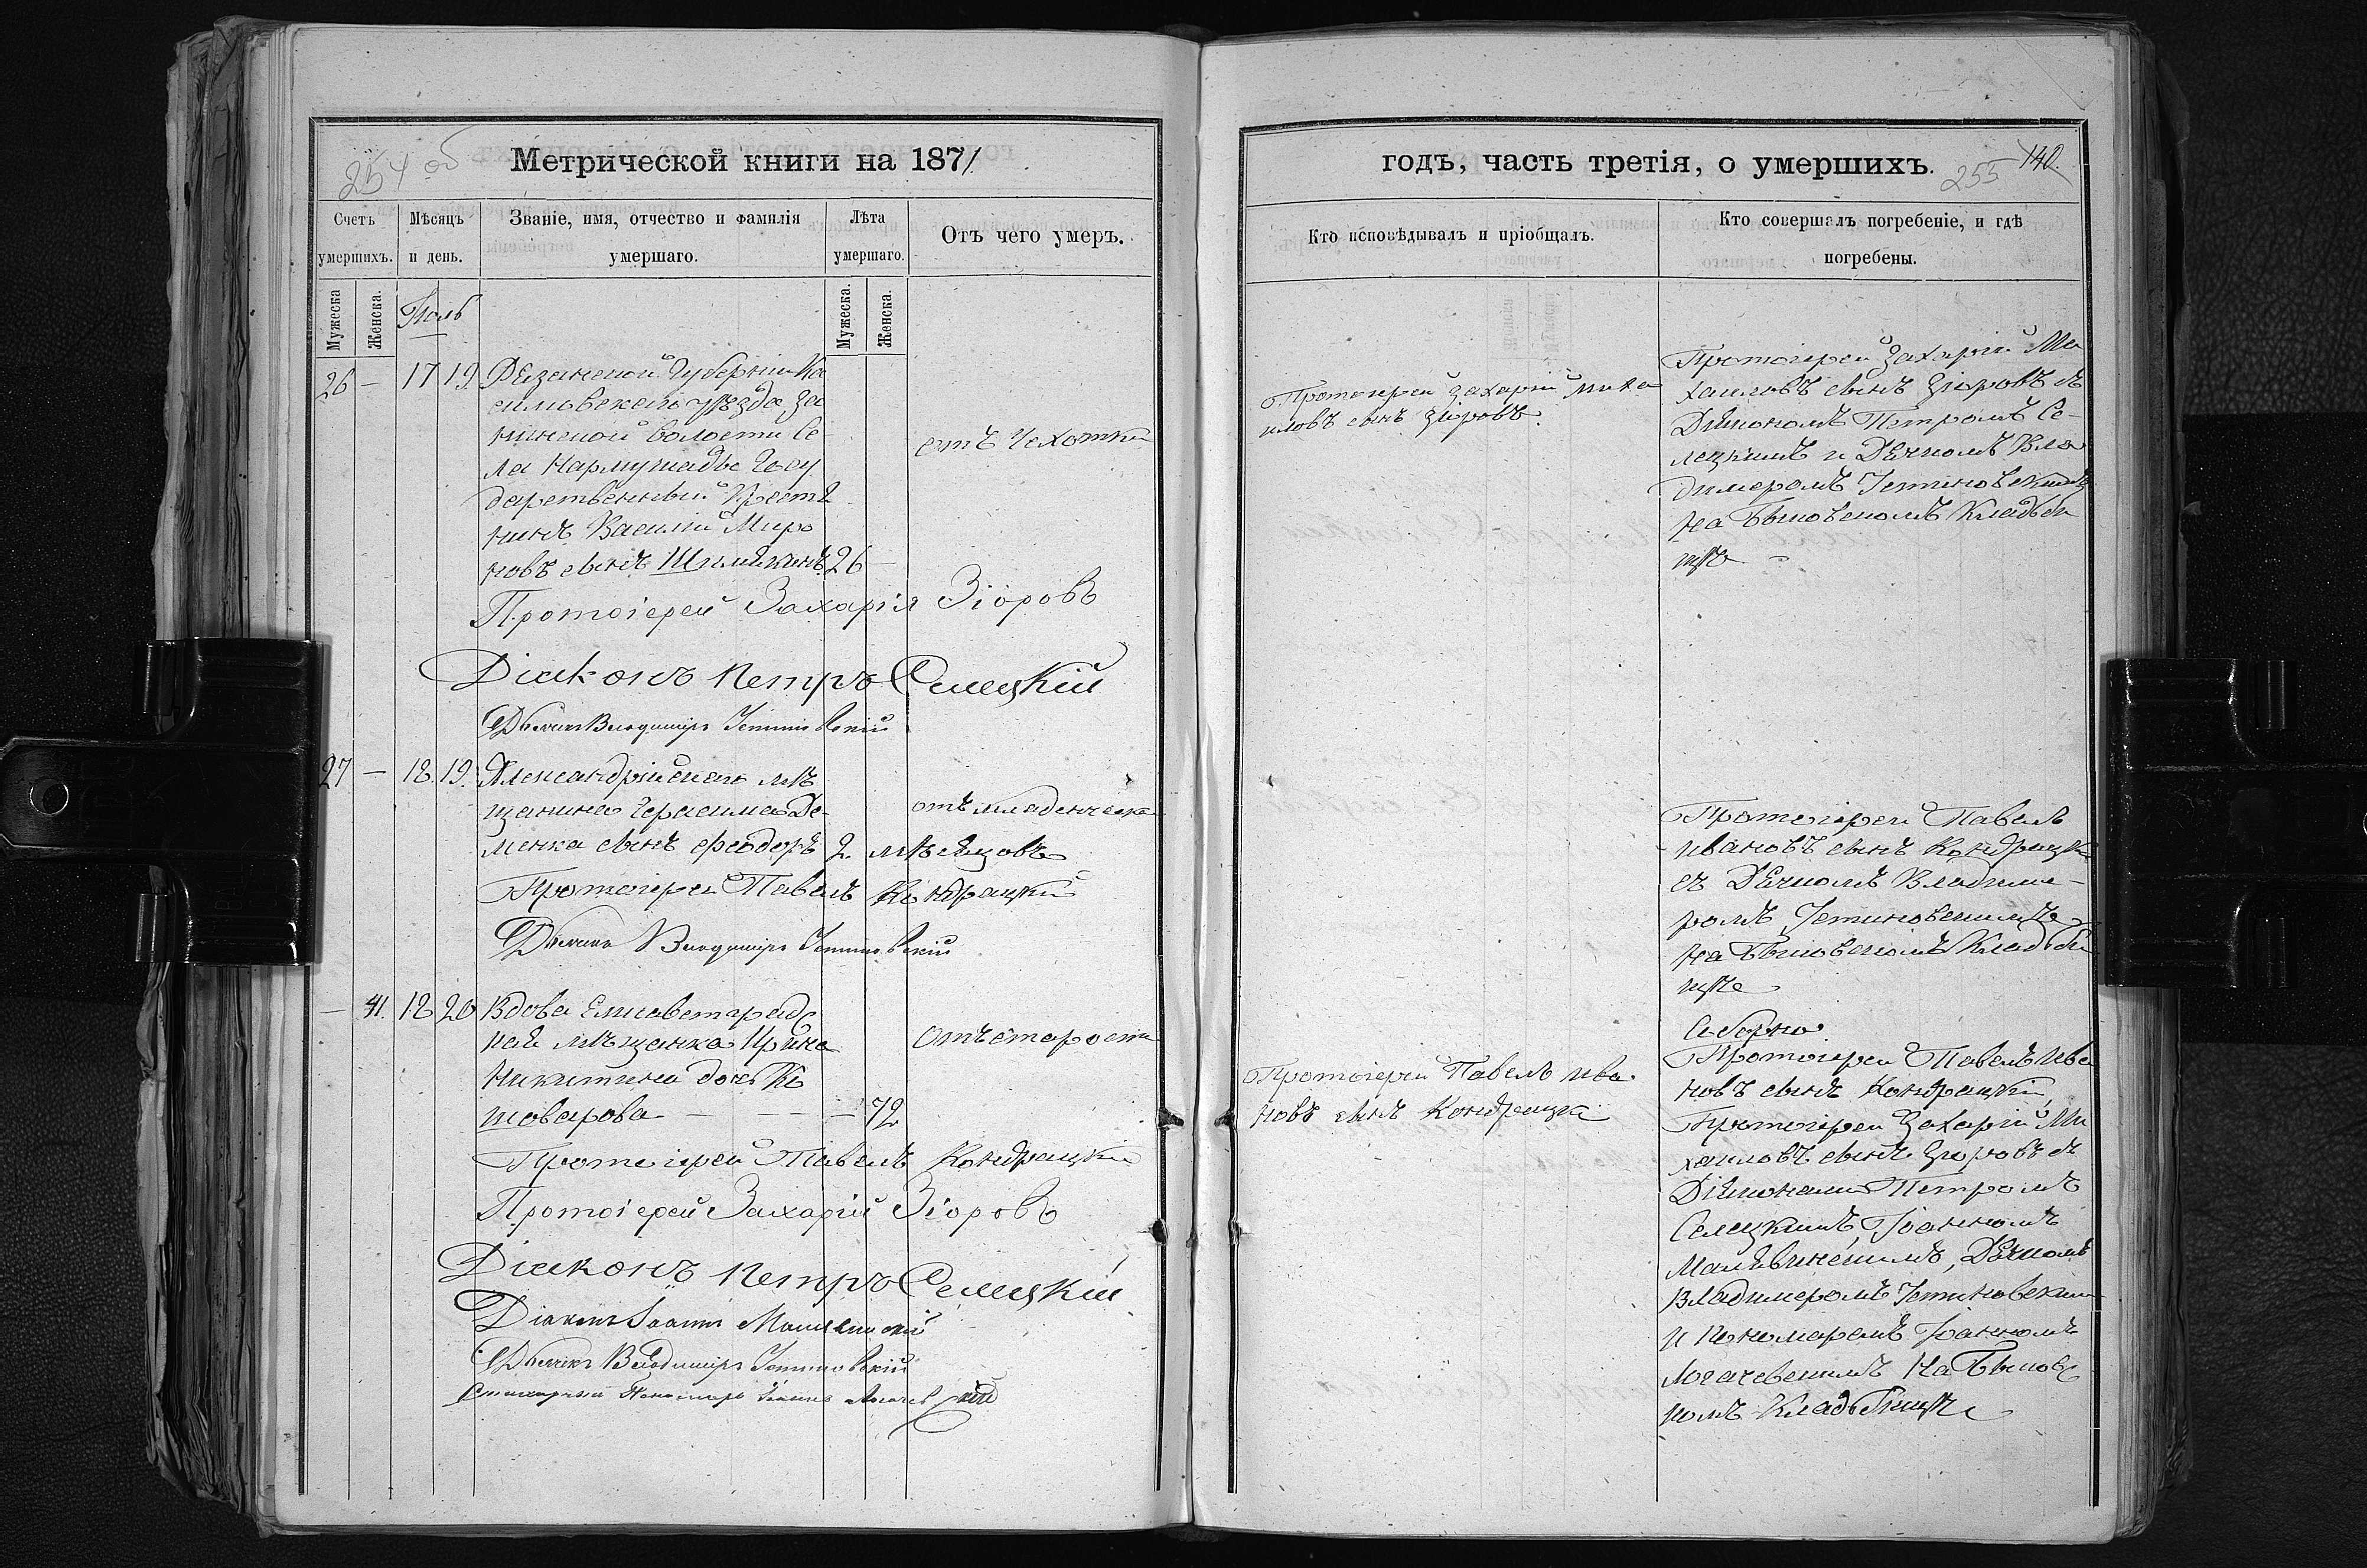 254 об
Метрической книги на 1871
Счетъ умершихъ.
Мѣсяцъ и день.
Званіе, имя, отчество и фамилія умершаго.
Лѣта умершаго.
Отъ чего умеръ.
Мужеска
Женска.
Мужеска.
Женска.
Іюль
26 — 17 19 Рязанской Губерніи Ка
симовскаго уѣзда, За
нинской волости Се-
ла Кармушадьі Госу
дарственный Крестя
нинъ Василій Миро
новъ сынъ 26 —
отъ Чехотки
Протоіерей Захарія Зіоровъ
Діаконъ Петръ Селецкій
Дьячокъ Владиміръ Устиновскій
27 — 18 19. Александрійскаго мѣ
щанина Герасима Де-
менка сынъ Феодоръ 2. мѣсяцовъ
отъ младенческа
Протоіерей Павелъ Кондрацкій
Дьячокъ Владиміръ Устиновскій
— 41. 18 20 Вдова Елисаветград
ская мѣщанка Ирина
Никитина дочь Ко
шоварова — — — — 72
Отъ старости
Протоіерей Павелъ Кондрацкій
Протоіерей Захарій Зіоровъ
Діаконъ Петръ Селецкій
Діаконъ Іоаннъ
Дьячокъ Владиміръ Устиновскій
Стихарный Пономарь Іоаннъ Логачевскій
годъ, часть третія, о умершихъ.
255
140.
Кто исповѣдывалъ и пріобщалъ.
Кто совершалъ погребеніе, и гдѣ
погребены.
Протоіерей Захарій Миха
иловъ сынъ Зіоровъ.
Протоіерей Захарій Ми
хаиловъ сынъ Зіоровъ съ
Діякономъ Петромъ Се-
лецкимъ и Дячкомъ Вла
димеромъ Устиновскимъ
на Быковскомъ Кладби
щѣ
Протоіерей Павелъ
Ивановъ сынъ Кондрацкі
съ Дячкомъ Владиме-
ромъ Устиновскимъ
на Быковскомъ Кладби
щѣ
Соборно
Протоіерей Павелъ Ива
новъ сынъ Кондрацкій
Протоіерей Павелъ Ива
новъ сынъ Кондрацкій,
Протоіерей Захарій Ми
хаиловъ сынъ Зіоровъ съ
Діяконами Петромъ
Селецкимъ, Іоанномъ
Дячкомъ
Владимеромъ Устиновским
и Пономаремъ Іоанномъ
Логачевскимъ На Быковс
комъ Кладбищѣ